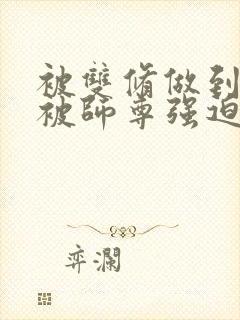 被雙脩做到
被師尊强迫
弈瀾